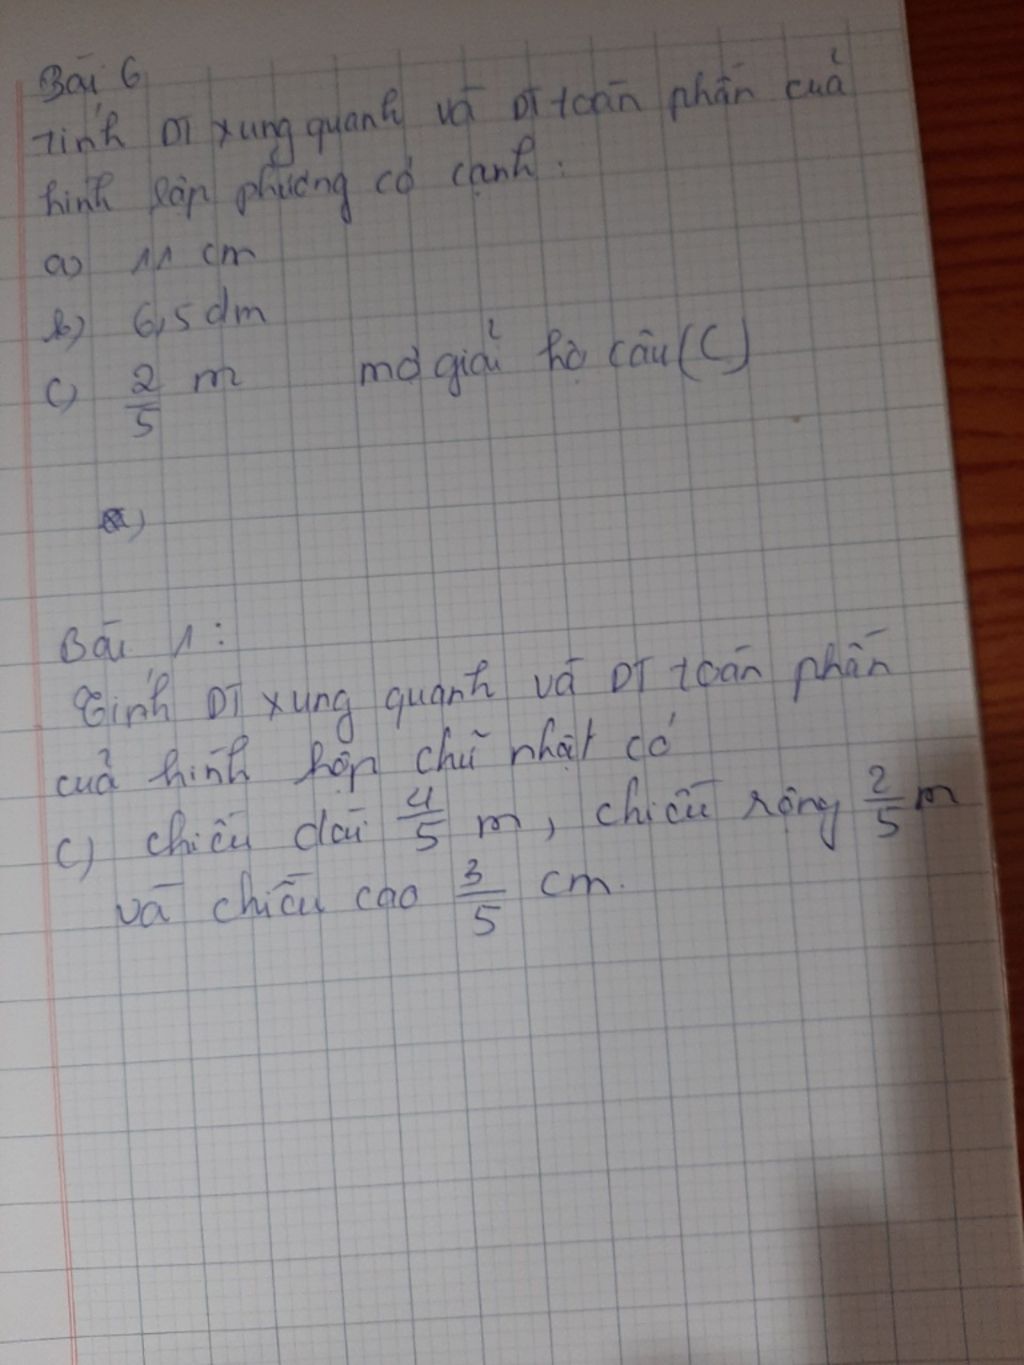 Bài 6
Tính DT xung quanh và DT toàn phần của
hình lập phương có cạnh:
a) 11 cm
b) 6,5 dm
c) 2/5 m mở giải hộ câu (C)
a)
Bài 1:
Tính DT xung quanh và DT toàn phần
của hình hộp chữ nhật có
c) chiều dài 4/5 m, chiều rộng 2/5 m
và chiều cao 3/5 cm.